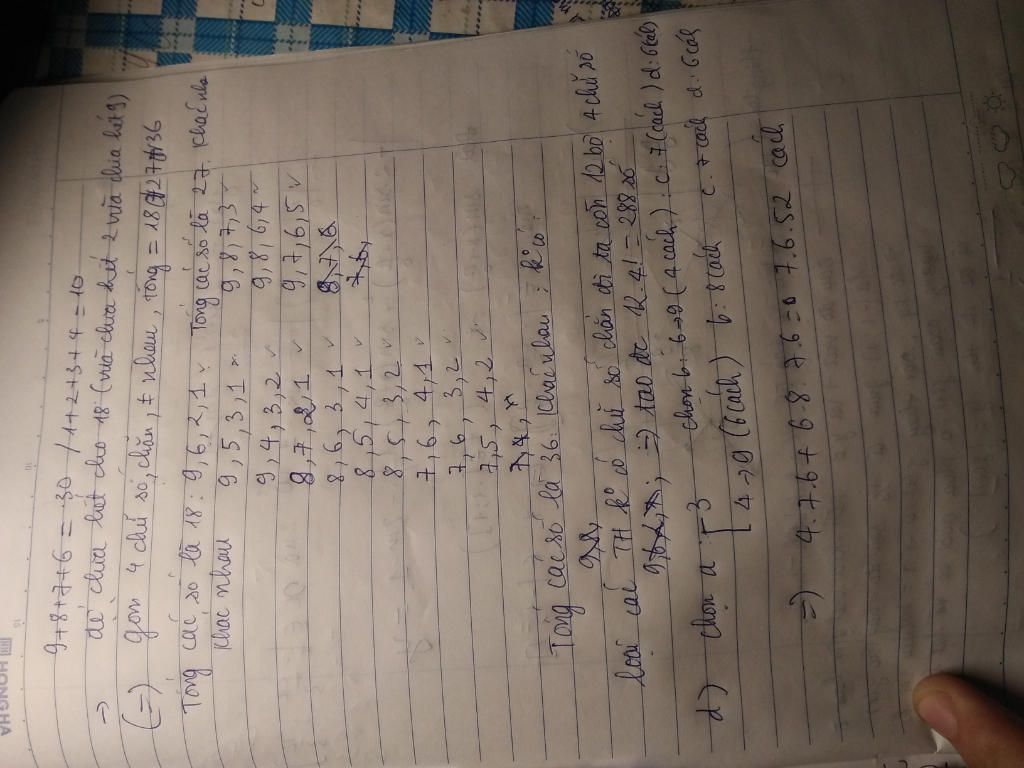 HONG HA
9+8+7+6 = 30 / 1+2+3+4 = 10
→ để chia hết cho 18 (vừa chia hết 2 vừa chia hết 9)
(=) gồm 4 chữ số, chẵn, ≠ nhau, tổng = 18, 27, 36
Tổng các số là 18: 9, 6, 2, 1 ✓ Tổng các số là 27. khác nhau
khác nhau 9, 5, 3, 1 ✓ 9, 8, 7, 3 ✓
9, 4, 3, 2 ✓ 9, 8, 6, 4 ✓
8, 7, 2, 1 ✓ 9, 7, 6, 5 ✓
8, 6, 3, 1 ✓ 8, 7, 8
8, 5, 4, 1 ✓ 7, 6,
8, 5, 3, 2 ✓
7, 6, 4, 1 ✓
7, 6, 3, 2 ✓
7, 5, 4, 2 ✓
7, 4,
Tổng các số là 36. (khác nhau) : k° có.
9, 8,
loại các TH k° có chữ số chẵn đi ta còn 12 bộ 4 chữ số
=) tạo đc 12.4! = 288 số
d) chọn a : 3 chọn b : 6 → 9 (4 cách) : c. 7 (cách) d : 6 cách
4 → 9 (6 cách) b : 8 cách c. 7 cách d : 6 cách
=) 4.7.6 + 6.8.7.6 = 7.6.52 cách